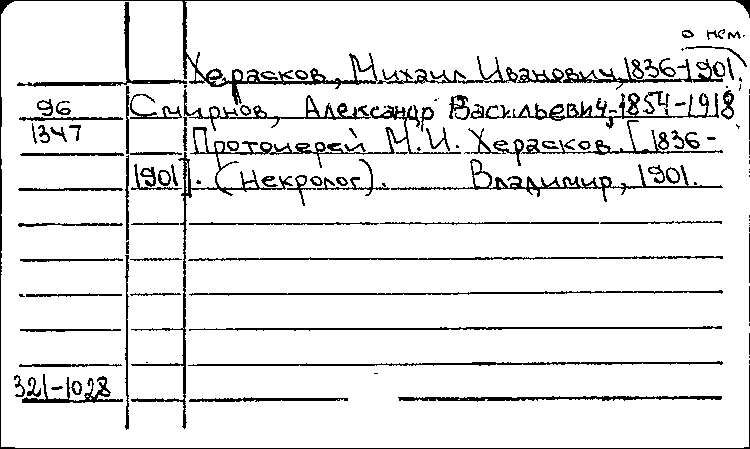 о нем.
Херасков, Михаил Иванович, 1836-1901.
96 Смирнов, Александр Васильевич, 1854-1918
1347 Протоиерей М. И. Херасков. [1836-
1901]. (Некролог). Владимир, 1901.
321-1028